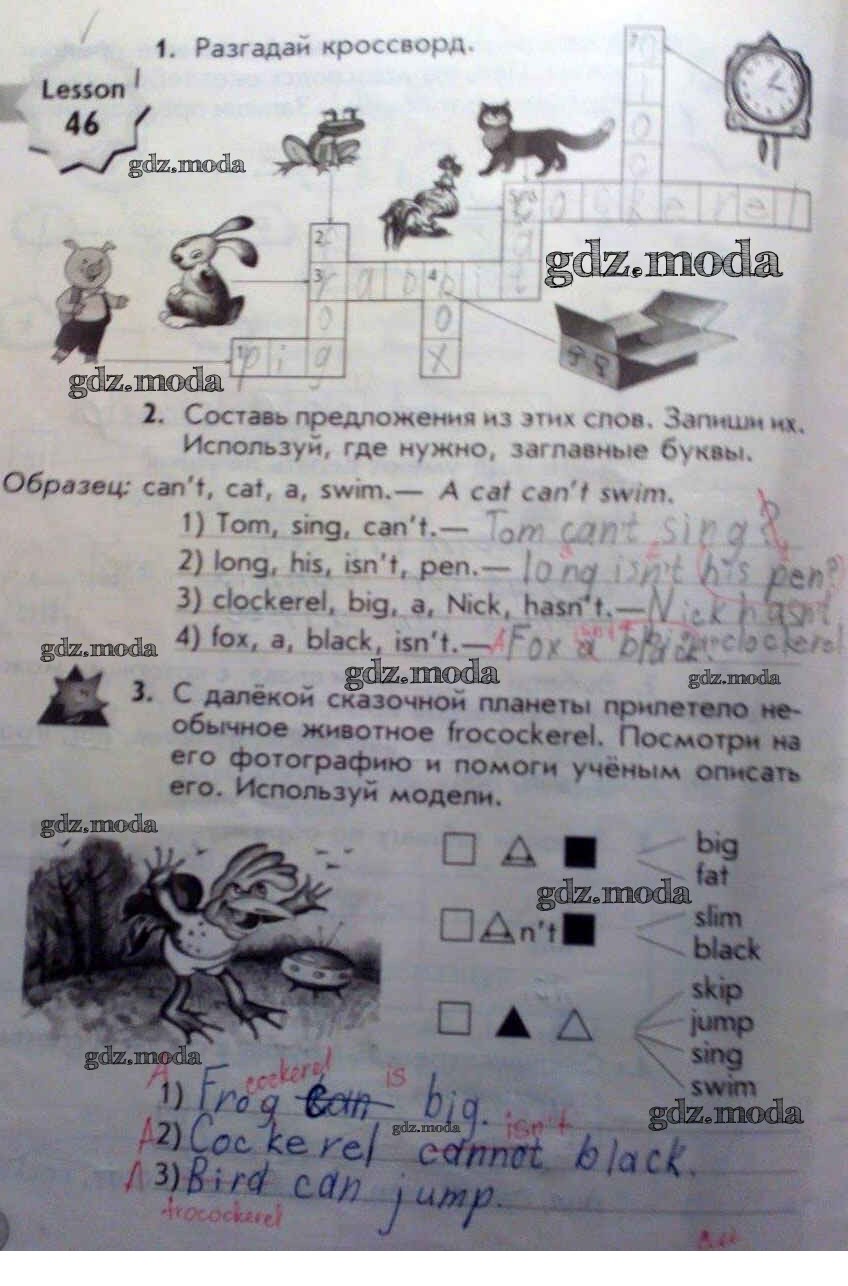 1. Разгадай кроссворд.
Lesson
46
gdz.moda
c l o c k
c o c k e r e l
c a t
2. f r o g
3. r a b b i t
4. b o x
1. p i g
gdz.moda
gdz.moda
2. Составь предложения из этих слов. Запиши их.
Используй, где нужно, заглавные буквы.
Образец: can't, cat, a, swim.— A cat can't swim.
1) Tom, sing, can't.— Tom can't sing?
2) long, his, isn't, pen.— long isn't his pen?
3) clockerel, big, a, Nick, hasn't.— Nick hasn't
big a clockerel
4) fox, a, black, isn't.— A Fox isn't a black.
gdz.moda
gdz.moda
gdz.moda
3. С далёкой сказочной планеты прилетело не-
обычное животное frocockerel. Посмотри на
его фотографию и помоги учёным описать
его. Используй модели.
gdz.moda
big
fat
gdz.moda
n't
slim
black
skip
jump
sing
swim
gdz.moda
gdz.moda
A cockerel is
1) Frog can big.
gdz.moda
isn't
A 2) Cockerel cannot black.
A 3) Bird can jump.
frocockerel